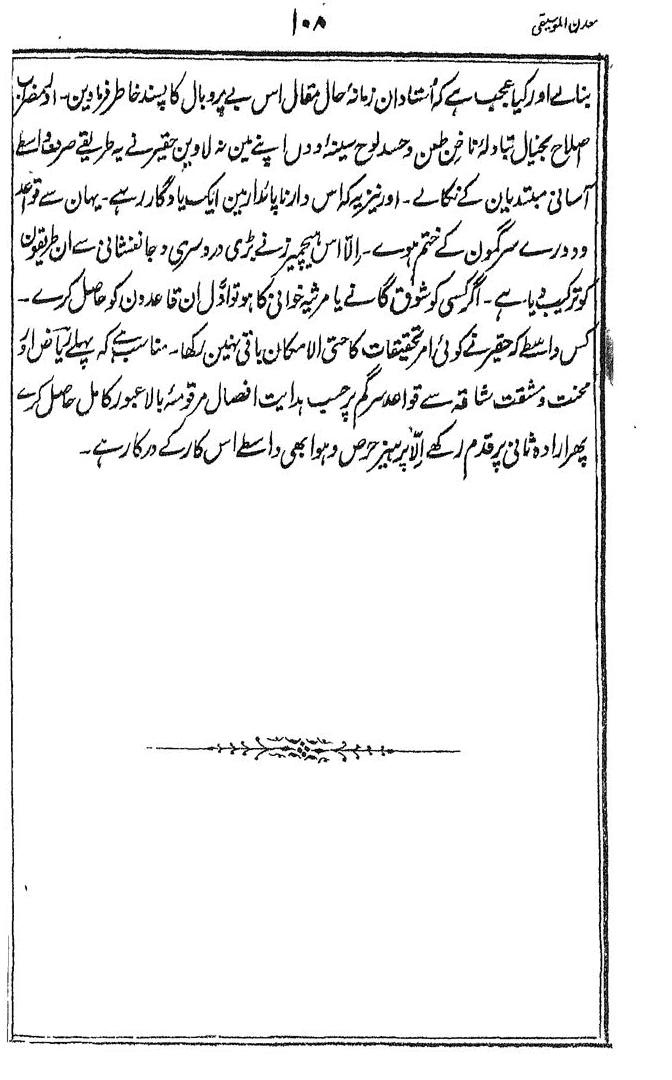 معدن الموسیقی
۱۰۸
بنالے اور کیا عجب ہے کہ اُستادان زمانۂ حال مقال اس بے پر و بال کا پسند خاطر فرماوین۔ اور مضراب
اصلاح بخیال تبادلۂ ناخن طعن و حسد لوح سینۂ و دل اپنے مین نہ لاوین حقیر نے یہ طریقے صرف واسطے
آسانی مبتدیان کے نکالے۔ اور نیز یہ کہ اس دار ناپائدار مین ایک یادگار رہے۔ یہان سے قواعد
و دورے سرگمون کے ختم ہوے۔ اِلّا اس ہیچمیرز نے بڑی دردسری و جانفشانی سے ان طریقون
کو ترکیب دیا ہے۔ اگر کسی کو شوق گانے یا مرثیہ خوانی کا ہو تو اوّل ان قاعدون کو حاصل کرے۔
کس واسطے کہ حقیر نے کوئی امر تحقیقات کا حتی الامکان باقی نہین رکھا۔ مناسب ہے کہ پہلے ریاض اور
محنت و مشقت شاقہ سے قواعد سرگم پر حسب ہدایت افصال مرقومۂ بالا عبور کامل حاصل کرے
پھر ارادہ ثانی پر قدم رکھے اِلّا پرہیز حرص و ہوا بھی واسطے اس کار کے درکار ہے۔